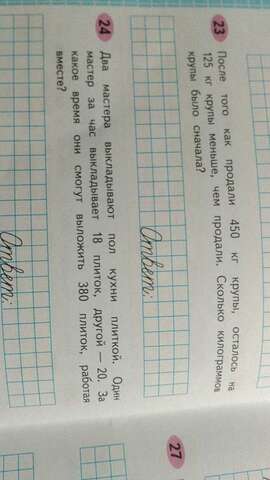 23 После того как продали 450 кг крупы, осталось на
125 кг крупы меньше, чем продали. Сколько килограммов
крупы было сначала?
Ответ:
24 Два мастера выкладывают пол кухни плиткой. Один
мастер за час выкладывает 18 плиток, другой — 20. За
какое время они смогут выложить 380 плиток, работая
вместе?
Ответ:
27